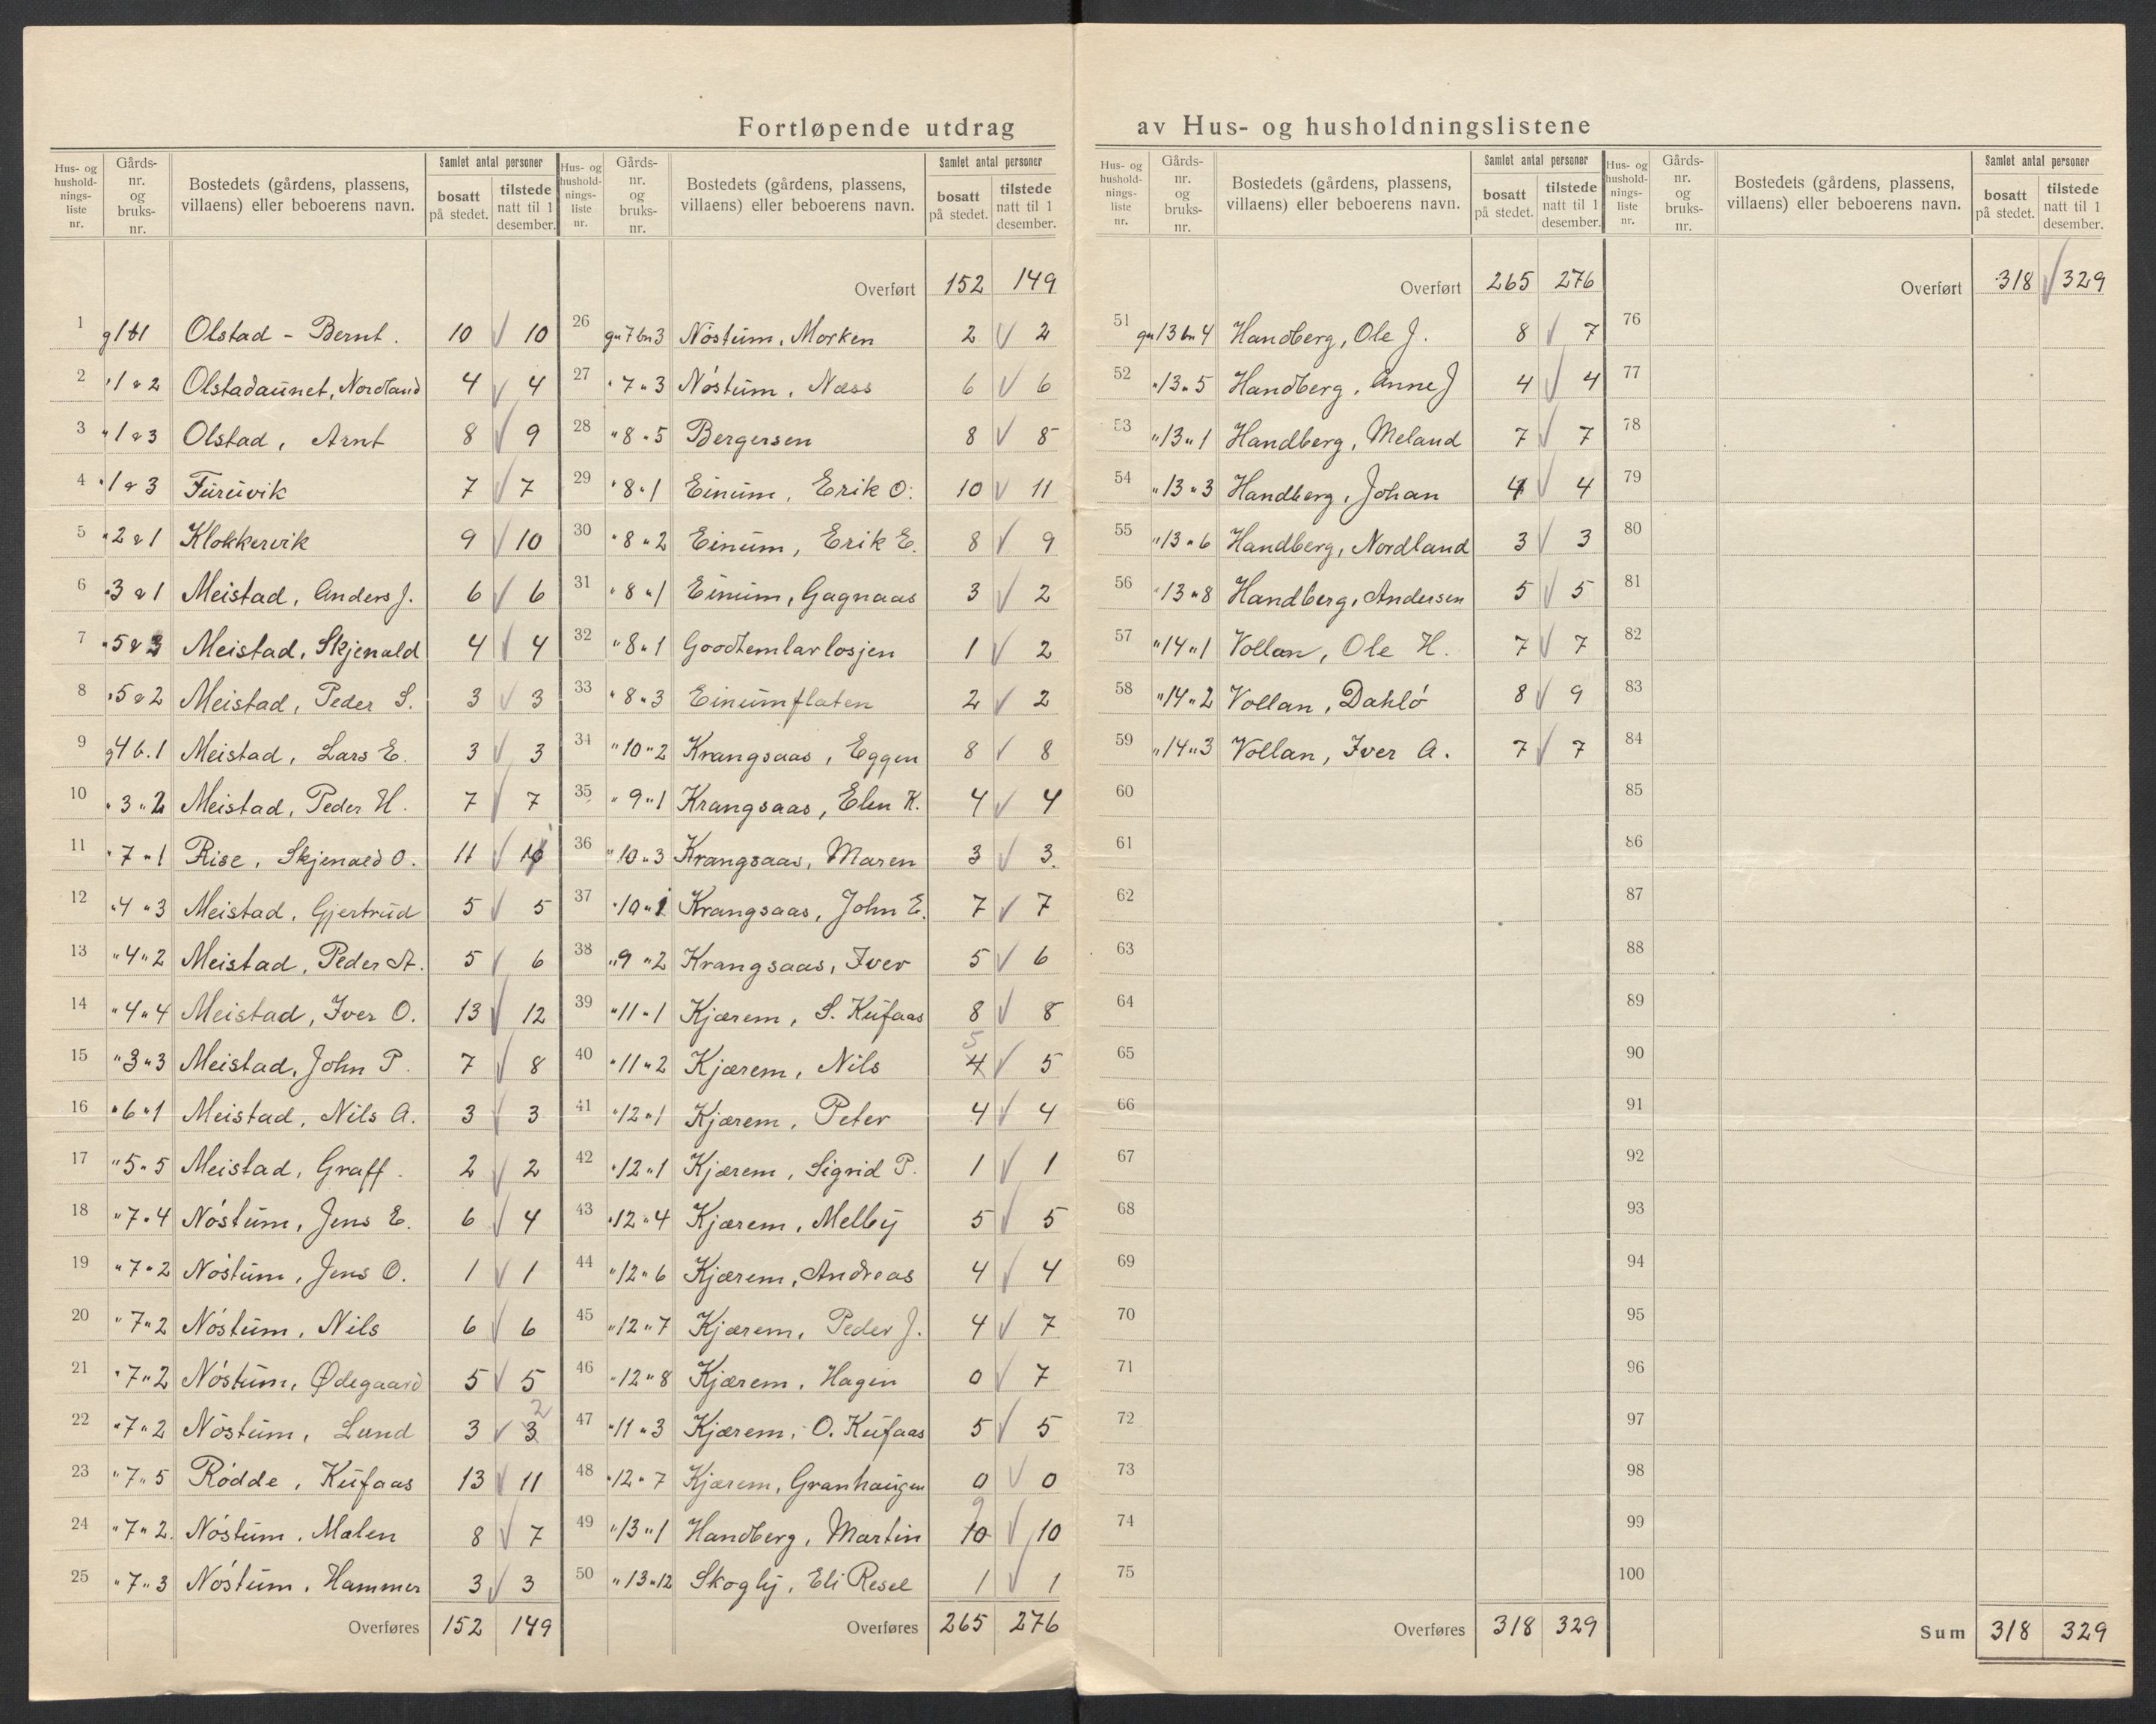 Fortløpende utdrag av Hus- og husholdningslistene
Hus- og husholdnings-liste nr. | Gårds-nr. og bruks-nr. | Bostedets (gårdens, plassens, villaens) eller beboerens navn. | Samlet antal personer bosatt på stedet. | tilstede natt til 1 desember.
1 g1 b1 Olstad - Bernt. 10 √ 10
2 " 1 " 2 Olstadaunet, Nordland 4 √ 4
3 " 1 " 3 Olstad, Arnt 8 √ 9
4 " 1 " 3 Furuvik 7 √ 7
5 " 2 " 1 Klokkervik 9 √ 10
6 " 3 " 1 Meistad, Anders J. 6 √ 6
7 " 5 " 3 Meistad, Skjenald 4 √ 4
8 " 5 " 2 Meistad, Peder S. 3 √ 3
9 g4 b.1 Meistad, Lars E. 3 √ 3
10 " 3 " 2 Meistad, Peder H. 7 √ 7
11 " 7 " 1 Rise, Skjenald O. 11 √
12 " 4 " 3 Meistad, Gjertrud 5 √ 5
13 " 4 " 2 Meistad, Peder A. 5 √ 6
14 " 4 " 4 Meistad, Iver O. 13 √ 12
15 " 3 " 3 Meistad, John P. 7 √ 8
16 " 6 " 1 Meistad, Nils A. 3 √ 3
17 " 5 " 5 Meistad, Graff. 2 √ 2
18 " 7 " 4 Nóstum, Jens E. 6 √ 4
19 " 7 " 2 Nóstum, Jens O. 1 √ 1
20 " 7 " 2 Nóstum, Nils 6 √ 6
21 " 7 " 2 Nóstum, Ødegaard 5 √ 5
22 " 7 " 2 Nóstum, Lund 3 √ 3 2
23 " 7 " 5 Ródde, Kufaas 13 √ 11
24 " 7 " 2. Nóstum, Malen 8 √ 7
25 " 7 " 3 Nóstum, Hammer 3 √ 3
Overføres 152 149
Hus- og husholdnings-liste nr. | Gårds-nr. og bruks-nr. | Bostedets (gårdens, plassens, villaens) eller beboerens navn. | Samlet antal personer bosatt på stedet. | tilstede natt til 1 desember.
Overført 152 149
26 gn 7 bn 3 Nóstum, Morken 2 √ 2
27 " 7 " 3 Nóstum, Næss 6 √ 6
28 " 8 " 5 Bergersen 8 √ 8
29 " 8 " 1 Einum, Erik O. 10 √ 11
30 " 8 " 2 Einum, Erik E. 8 √ 9
31 " 8 " 1 Einum, Gagnaas 3 √ 2
32 " 8 " 1 Goodtemlarlosjen 1 √ 2
33 " 8 " 3 Einumflaten 2 √ 2
34 " 10 " 2 Krangsaas, Eggen 8 √ 8
35 " 9 " 1 Krangsaas, Elen K. 4 √ 4
36 " 10 " 3 Krangsaas, Maren 3 √ 3.
37 " 10 " 1 Krangsaas, John E. 7 √ 7
38 " 9 " 2 Krangsaas, Iver 5 √ 6
39 " 11 " 1 Kjærem, S. Kufaas 8 √ 8
40 " 11 " 2 Kjærem, Nils 4 5 √ 5
41 " 12 " 1 Kjærem, Peter 4 √ 4
42 " 12 " 1 Kjærem, Sigrid P. 1 √ 1
43 " 12 " 4 Kjærem, Melby 5 √ 5
44 " 12 " 6 Kjærem, Andreas 4 √ 4
45 " 12 " 7 Kjærem, Peder J. 4 √ 7
46 " 12 " 8 Kjærem, Hagen 0 √ 7
47 " 11 " 3 Kjærem, O. Kufaas 5 √ 5
48 " 12 " 7 Kjærem, Granhaugen 0 √ 0
49 " 13 " 1 Handberg, Martin 10 9 √ 10
50 " 13 " 12 Skogly, Eli Resel 1 √ 1
Overføres 265 276
Hus- og husholdnings-liste nr. | Gårds-nr. og bruks-nr. | Bostedets (gårdens, plassens, villaens) eller beboerens navn. | Samlet antal personer bosatt på stedet. | tilstede natt til 1 desember.
Overført 265 276
51 gn 13 bn 4 Handberg, Ole J. 8 √ 7
52 " 13 " 5 Handberg, Anne J 4 √ 4
53 " 13 " 1 Handberg, Meland 7 √ 7
54 " 13 " 3 Handberg, Johan 4 √ 4
55 " 13 " 6 Handberg, Nordland 3 √ 3
56 " 13 " 8 Handberg, Andersen 5 √ 5
57 " 14 " 1 Vollan, Ole H. 7 √ 7
58 " 14 " 2 Vollan, Dahló 8 √ 9
59 " 14 " 3 Vollan, Iver A. 7 √ 7
60
61
62
63
64
65
66
67
68
69
70
71
72
73
74
75
Overføres 318 329
Hus- og husholdnings-liste nr. | Gårds-nr. og bruks-nr. | Bostedets (gårdens, plassens, villaens) eller beboerens navn. | Samlet antal personer bosatt på stedet. | tilstede natt til 1 desember.
Overført 318 √ 329
76
77
78
79
80
81
82
83
84
85
86
87
88
89
90
91
92
93
94
95
96
97
98
99
100
Sum 318 329